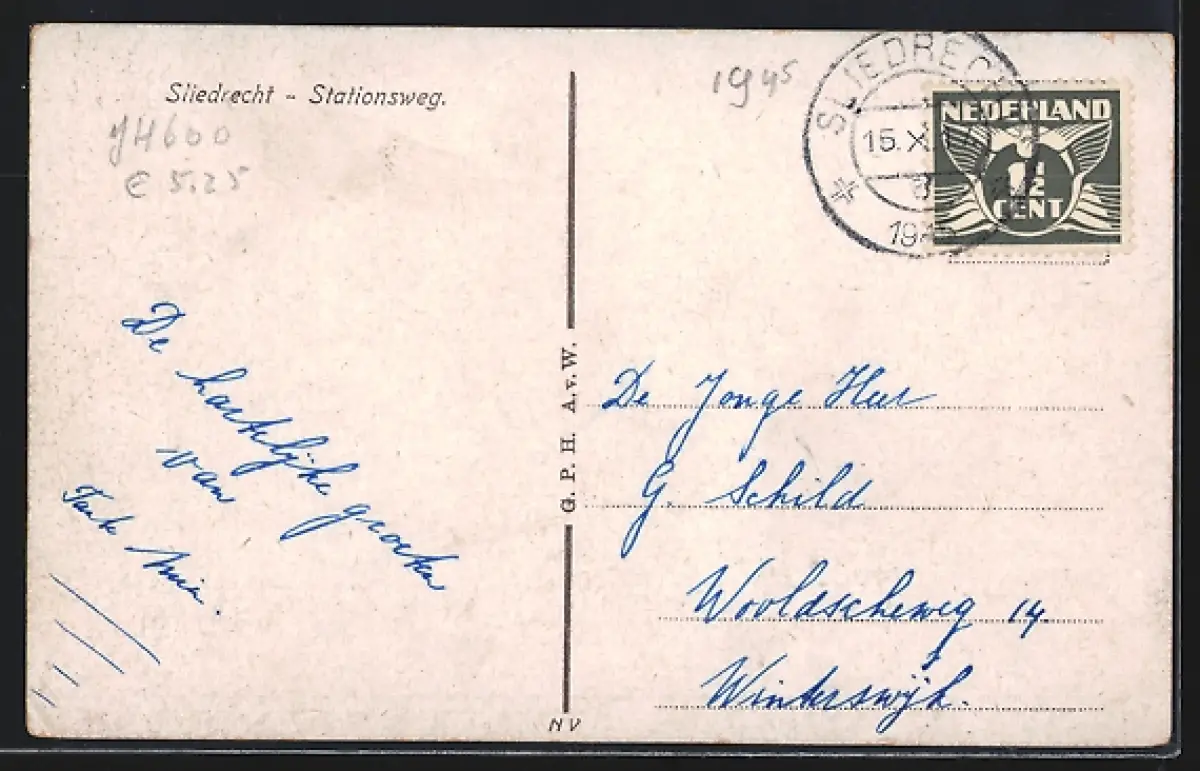 Sliedrecht - Stationsweg.
1945
JH600
€ 5.25
SLIEDRECHT
15.X
1945
NEDERLAND
1½
CENT
De hartelijke groeten
van
Tante Mia.
G. P. H. A. v. W.
De Jonge Heer
G. Schild
Wooldscheweg 14.
Winterswijk.
NV